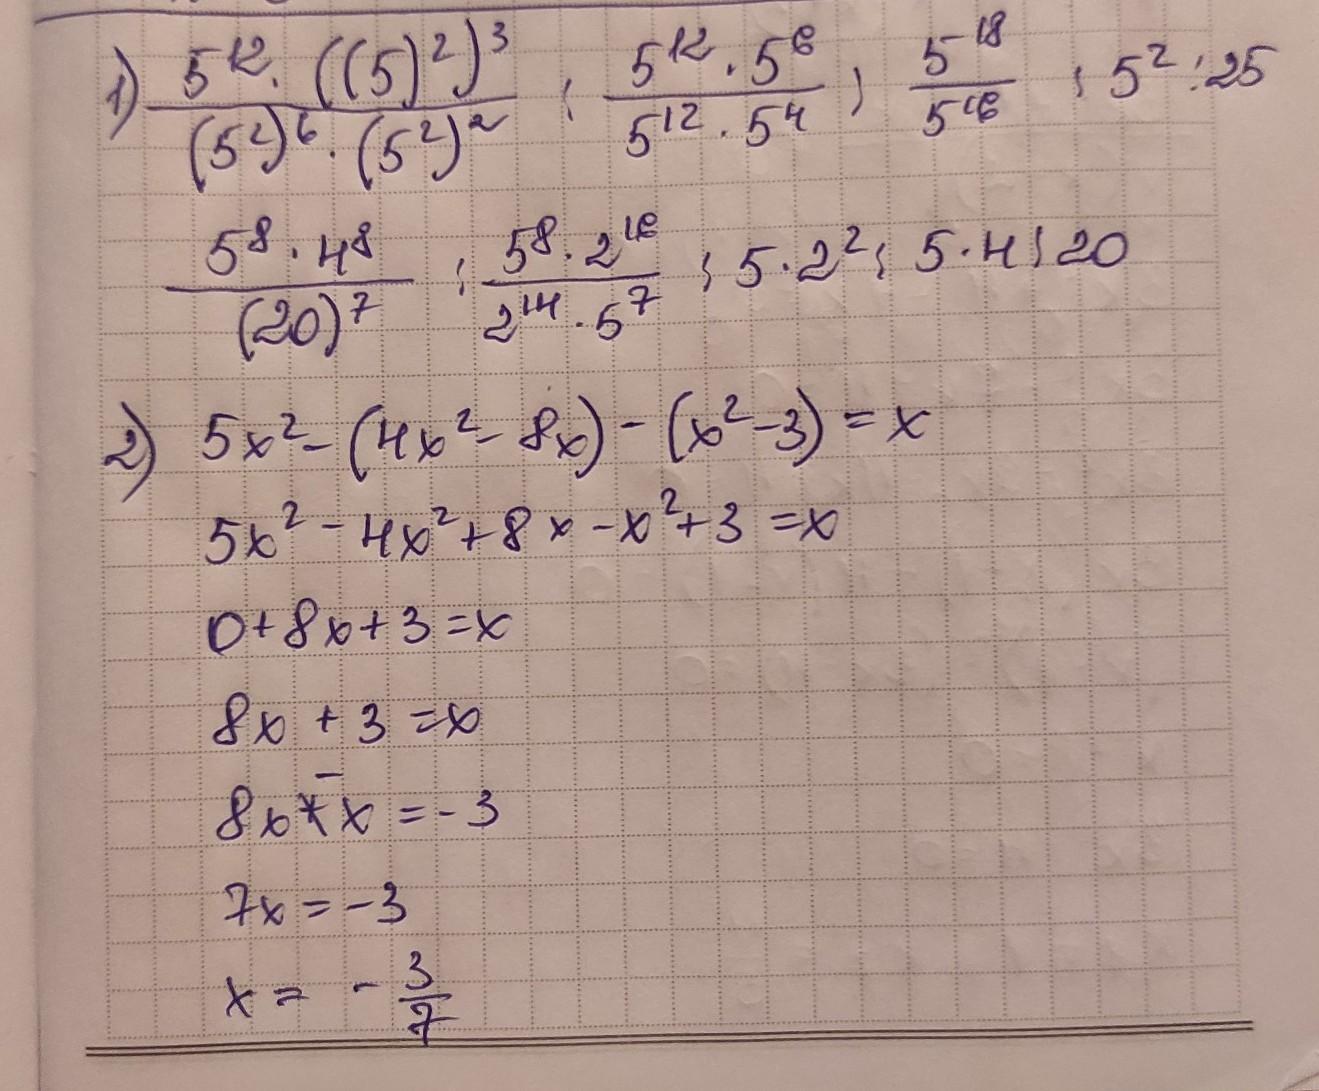 1) \frac{5^{12} \cdot ((5)^2)^3}{(5^2)^6 \cdot (5^2)^2} ; \frac{5^{12} \cdot 5^6}{5^{12} \cdot 5^4} ; \frac{5^{18}}{5^{16}} ; 5^2 ; 25
\frac{5^8 \cdot 4^8}{(20)^7} ; \frac{5^8 \cdot 2^{16}}{2^{14} \cdot 5^7} ; 5 \cdot 2^2 ; 5 \cdot 4 ; 20
2) 5x^2 - (4x^2 - 8x) - (x^2 - 3) = x
5x^2 - 4x^2 + 8x - x^2 + 3 = x
0 + 8x + 3 = x
8x + 3 = x
8x - x = -3
7x = -3
x = - \frac{3}{7}